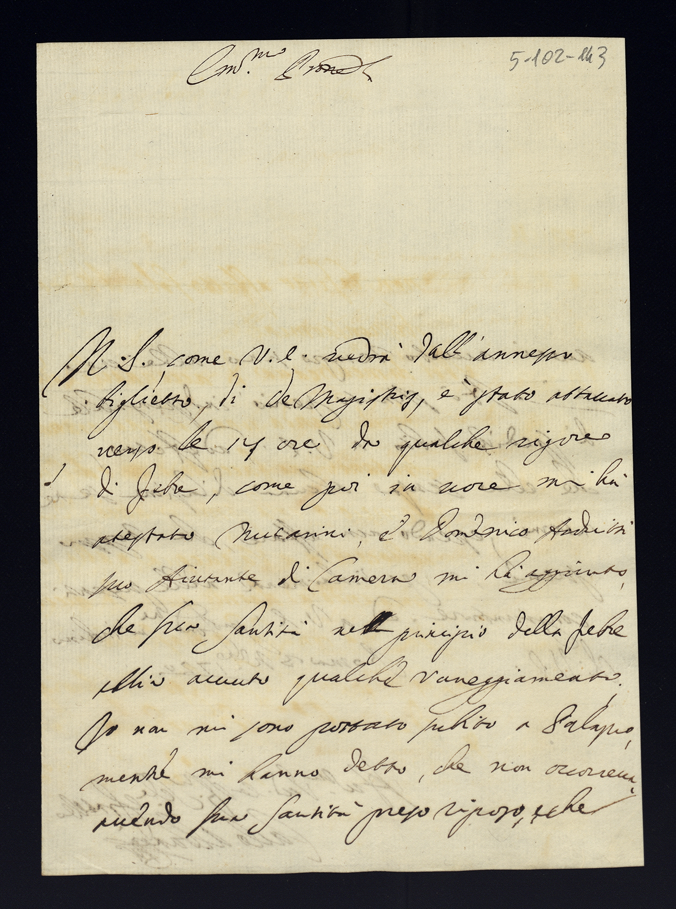 5-102-143
Em.mo Prone
N. S. come V. E. vedrà dall'annesso
biglietto, di De Magistris, è stato attaccato
verso le 17 ore da qualche rigore
di febre, come poi in voce mi hà
attestato Nucarini, e Domenico
suo Aiutante di Camera mi hà aggiunto,
che Sua Santità nell principio della febre
abbia avuto qualche vaneggiamento.
Io non mi sono portato subito a Palazzo,
mentre mi hanno detto, che non occorreva,
avendo Sua Santità preso riposo, e che